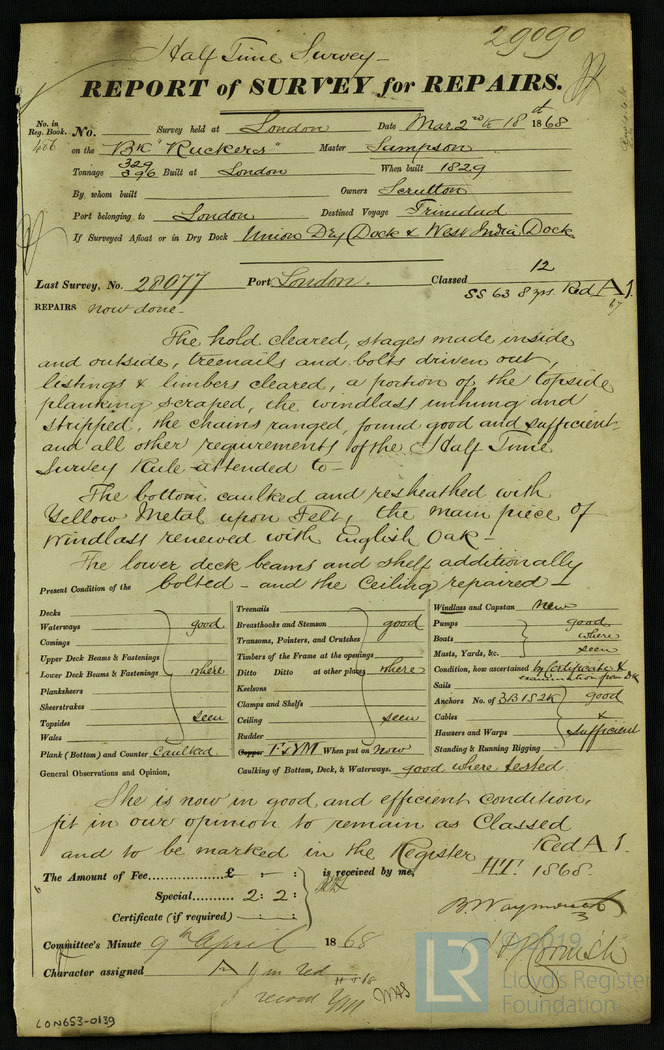 Half Time Survey
29090
REPORT of SURVEY for REPAIRS.
No. in Reg. Book. No. Survey held at London Date Mar 2nd to 18th 1868
486 on the Bk "Ruckers" Master Sampson
Tonnage 329 396 Built at London When built 1829
By whom built Owners Scrutton
Port belonging to London Destined Voyage Trinidad
If Surveyed Afloat or in Dry Dock Union Dry Dock & West India Dock
Last Survey, No. 28077 Port London. Classed 12
SS 63 8 yrs. Red A 1.
67
REPAIRS now done.
The hold cleared, stages made inside
and outside, treenails and bolts driven out,
listings & limbers cleared, a portion of the topside
planking scraped, the windlass unhung and
stripped, the chains ranged, found good and sufficient
and all other requirements of the Half Time
Survey Rule attended to—
The bottom caulked and resheathed with
Yellow Metal upon Felt, the main piece of
Windlass renewed with English Oak—
The lower deck beams and shelf additionally
Present Condition of the bolted – and the Ceiling repaired—
Decks
Waterways good
Comings
Upper Deck Beams & Fastenings
Lower Deck Beams & Fastenings where
Planksheers
Sheerstrakes
Topsides seen
Wales
Plank (Bottom) and Counter Caulked
Treenails
Breasthooks and Stemson good
Transoms, Pointers, and Crutches
Timbers of the Frame at the openings
Ditto Ditto at other places where
Keelsons
Clamps and Shelfs
Ceiling seen
Rudder
Copper F & YM When put on now
Windlass and Capstan new
Pumps good
Boats where
Masts, Yards, &c. seen
Condition, how ascertained by Certificate &
examination from Dk
Sails
Anchors No. of 3B 1S 2K good
Cables &
Hawsers and Warps sufficient
Standing & Running Rigging
General Observations and Opinion, Caulking of Bottom, Deck, & Waterways. good where tested
She is now in good and efficient condition,
fit in our opinion to remain as Classed
Red A 1.
and to be marked in the Register HT. 1868.
The Amount of Fee £ - : - : is received by me,
Special 2 : 2 :
Certificate (if required)
B. Waymouth
Committee's Minute 9th April 1868
Character assigned A 1 in red
HT 68
record YM
WAS
LON653-0139
LR
© 2019
Lloyd's Register
Foundation